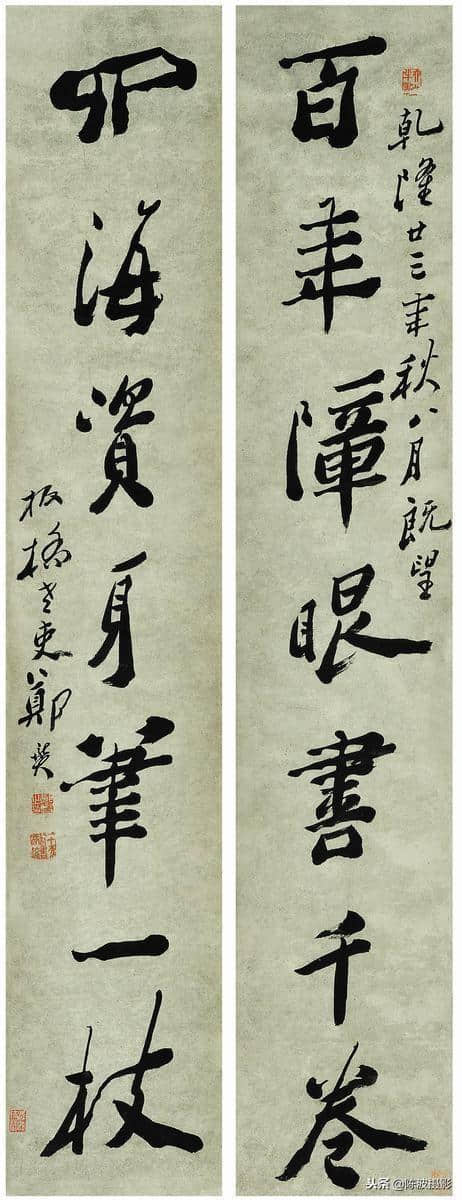 乾隆廿三年秋八月既望
百年障眼書千卷
四海資身筆一枝
板橋老吏鄭燮
头条@陈波摄影